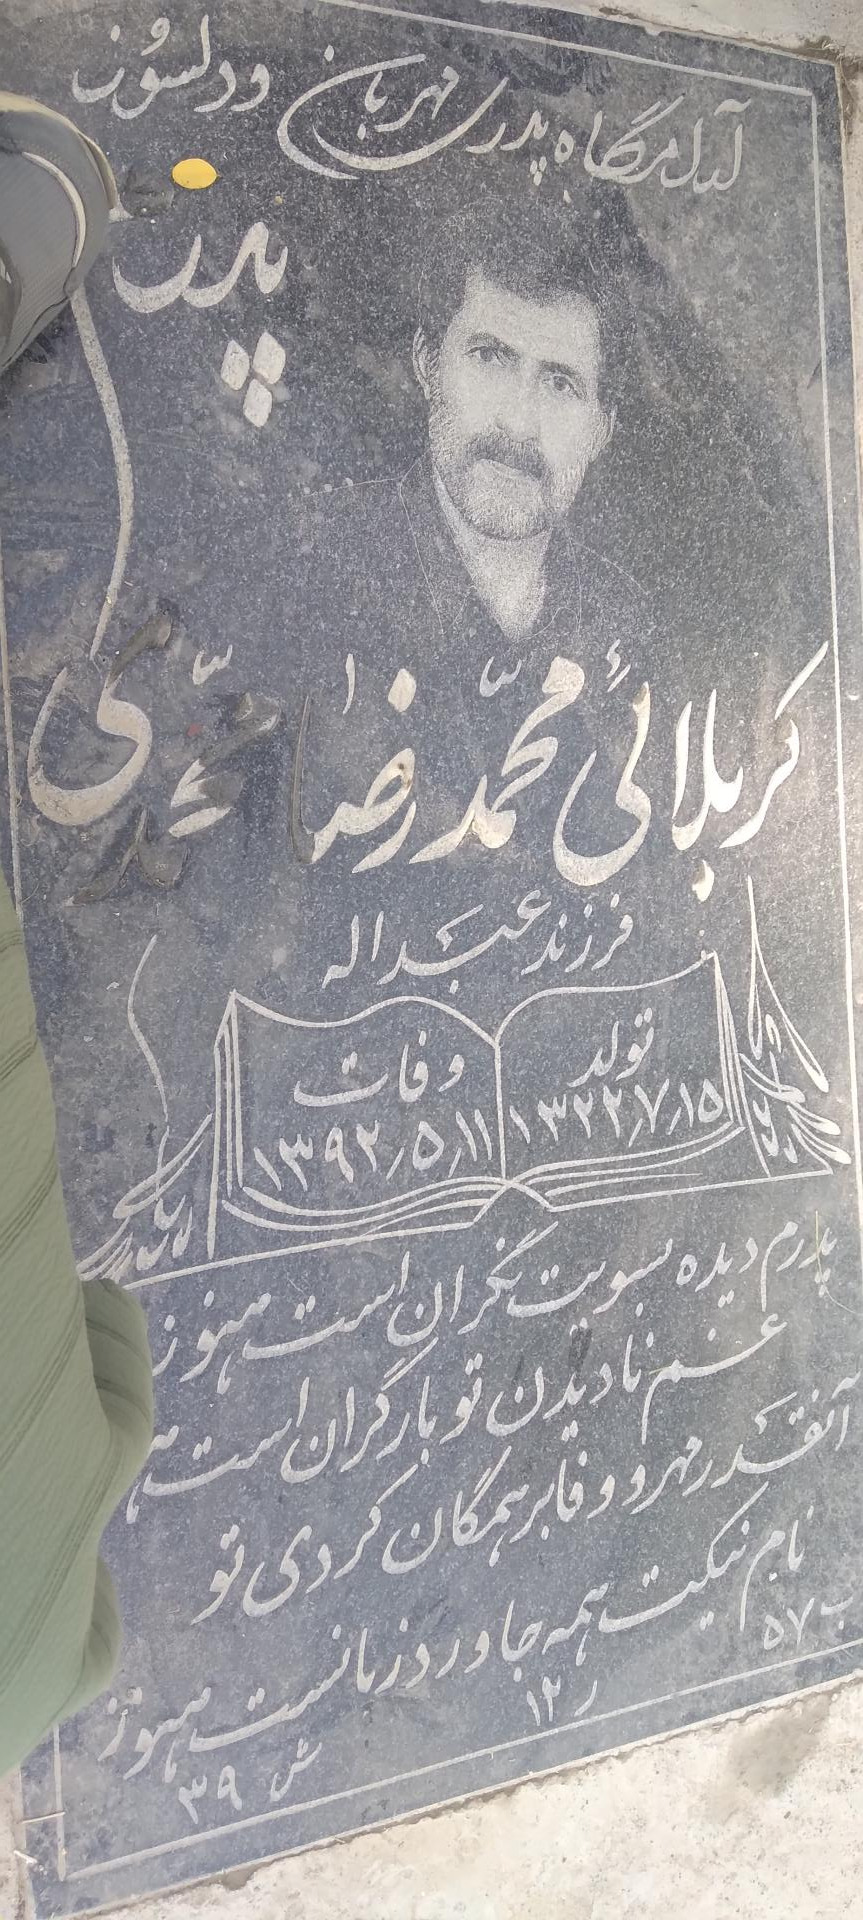 آرامگاه پدری مهربان ودلسوز
پدر
کربلائی محمّدرضا محمّدی
فرزند عبداله
تولد
۱۳۲۲٫۷٫۱۵
وفات
۱۳۹۲٫۵٫۱۱
پدرم دیده بسویت نگران است هنوز
غم نادیدن تو بار گران است
آنقدر مهر و وفا بر همگان کردی تو
نام نیکت همه جا ورد زبانست هنوز
ب ۵۷
ر ۱۲
ش ۳۹